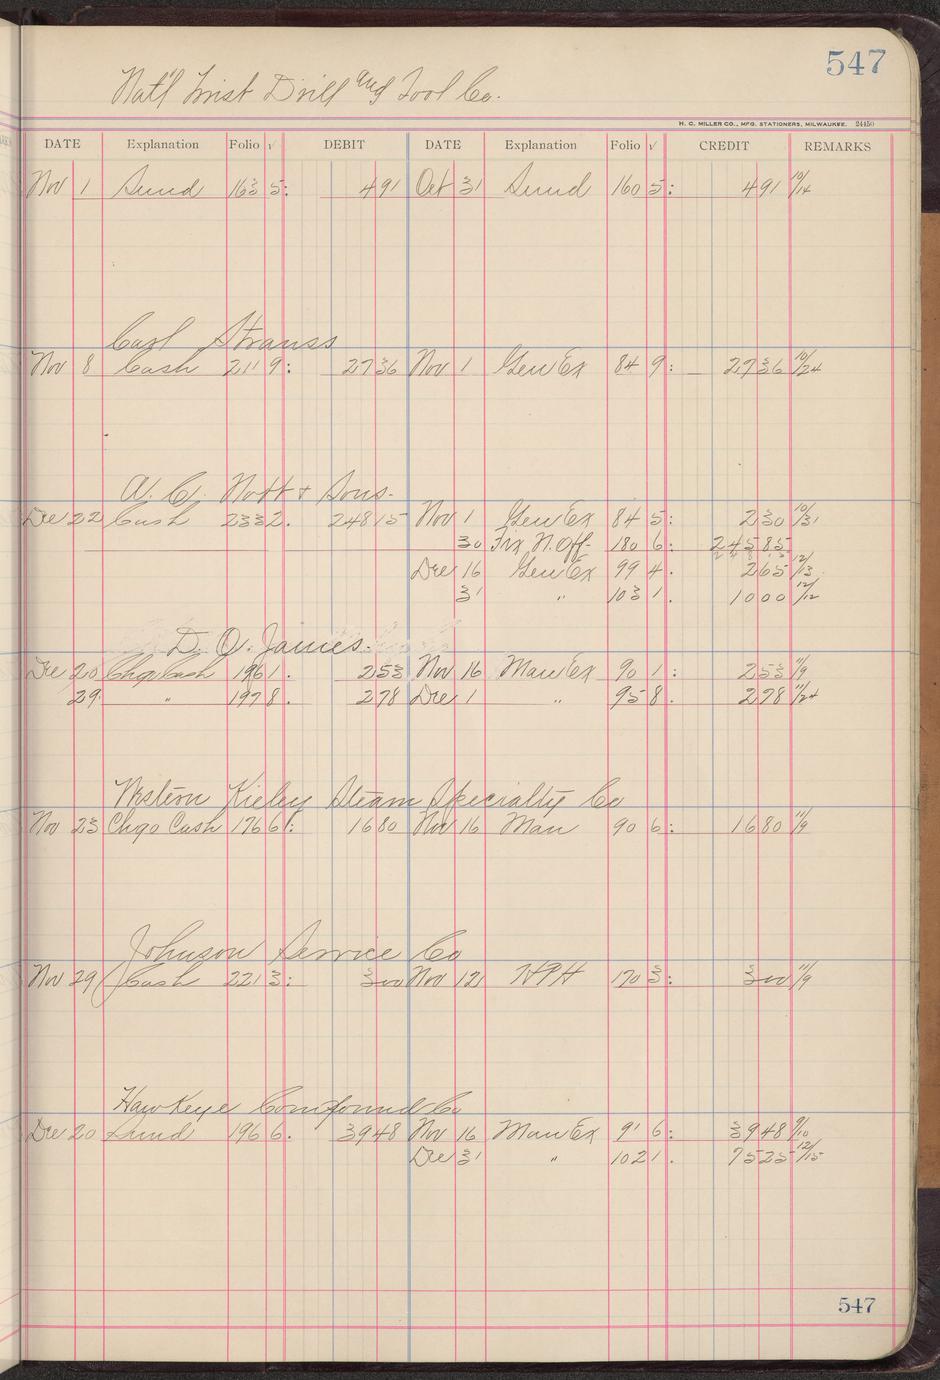 547
Nat'l Twist Drill and Tool Co.
H. C. MILLER CO., MFG. STATIONERS, MILWAUKEE. 24450
DATE Explanation Folio √ DEBIT DATE Explanation Folio √ CREDIT REMARKS
Nov 1 Sund 163 5: 491 Oct 31 Sund 160 5: 491 10/14
Carl Strauss
Nov 8 Cash 211 9: 2736 Nov 1 Gen Ex 84 9: 2736 10/24
A. C. Nott & Sons.
Dec 22 Cash 233 2. 24815 Nov 1 Gen Ex 84 5: 230 10/31
30 Fix N. Off- 180 6: 24585
Dec 16 Gen Ex 99 4. 265 12/13
31 " 103 1. 1000 12/12
D. O. James.
Dec 20 Chgo Cash 196 1. 253 Nov 16 Man Ex 90 1: 253 11/9
29 " 197 8. 278 Dec 1 " 95 8. 278 11/24
Western Kieley Steam Specialty Co
Nov 23 Chgo Cash 176 6: 1680 Nov 16 Man 90 6: 1680 11/9
Johnson Service Co
Nov 29 Cash 221 3: 300 Nov 12 HPH 170 3: 300 11/9
HawKeye Compound Co
Dec 20 Sund 196 6. 3948 Nov 16 Man Ex 91 6: 3948 9/10
Dec 31 " 102 1. 7525 12/15
547